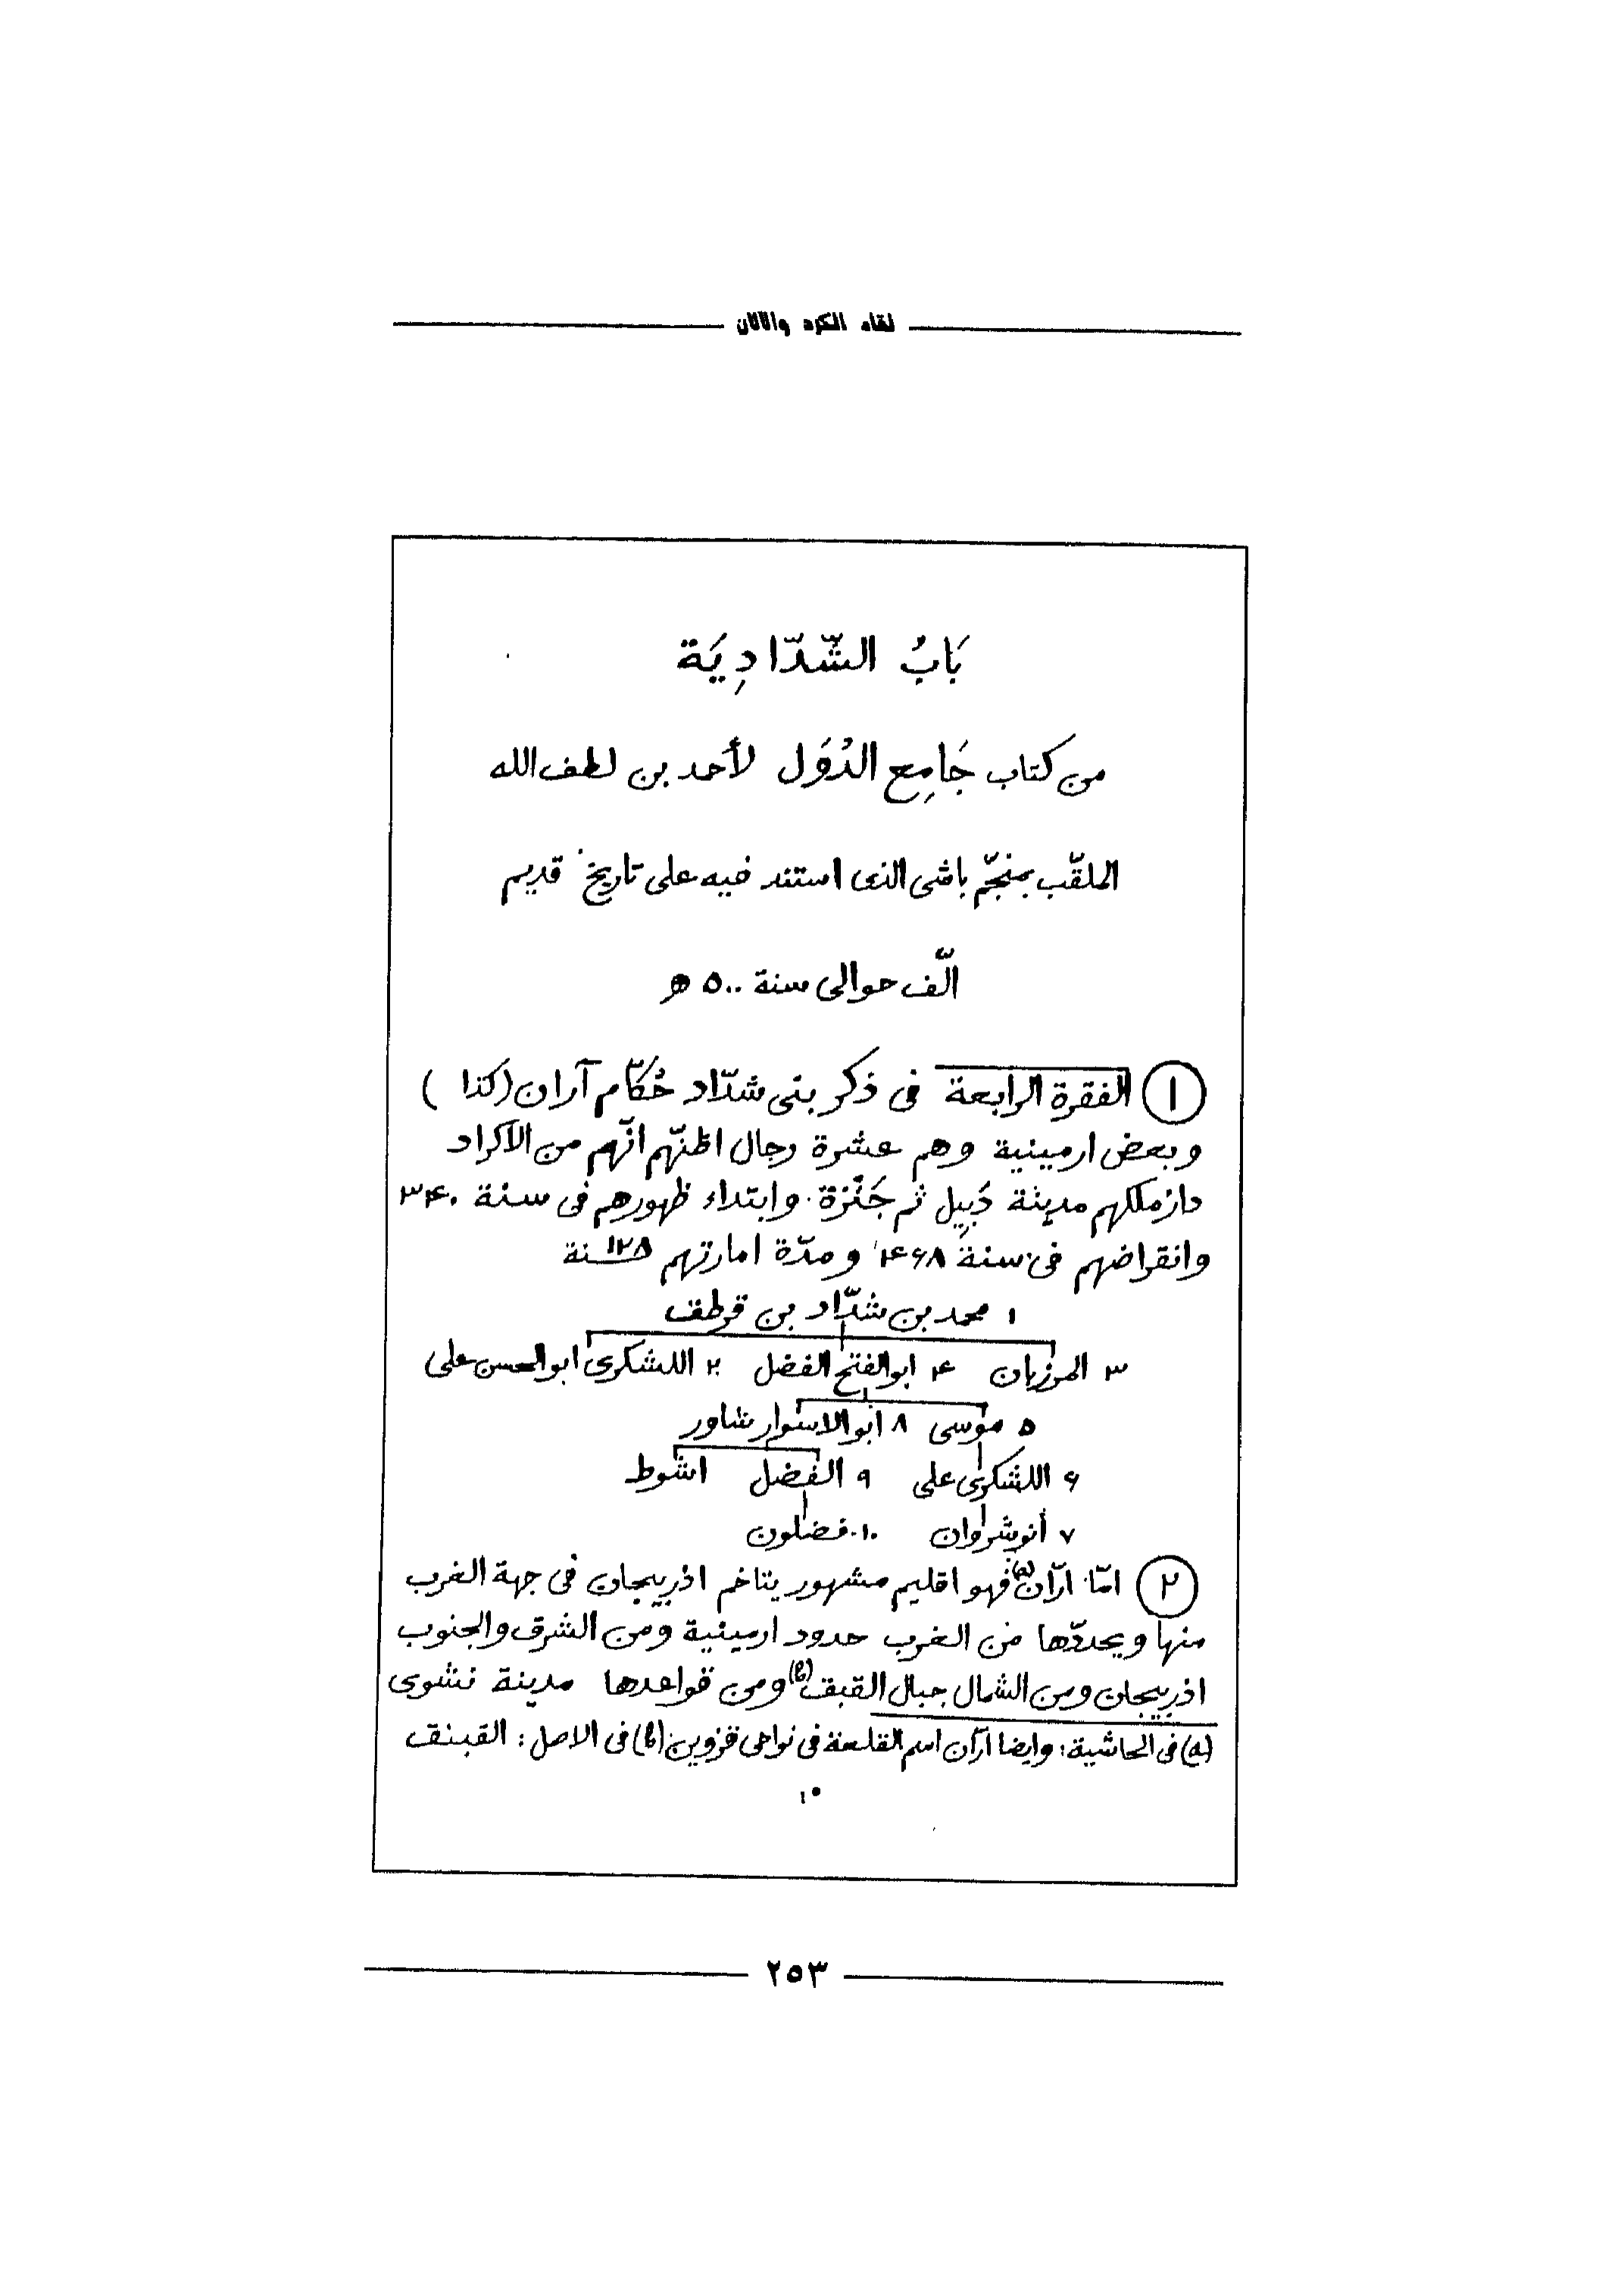 لقاء الكرد والآلان
بَابُ الشّدّادِيَة
من كتاب جَامِع الدُوَل لأحمد بن لطف الله
الملقّب بمنجّم باشى الذى استند فيه على تاريخ قديم
الّف حوالى سنة ٥٠٠ ه
١ الفقرة الرابعة فى ذكر بنى شدّاد حُكّام آران (كذا )
وبعض ارمينية وهم عشرة رجال اظنّهم انّهم من الاكراد
دار ملكهم مدينة دَبِيل ثم جَنْزة وابتداء ظهورهم فى سنة ٣۴٠
وانقراضهم فى سنة ۴۶٨ ومدّة امارتهم ١٢٨ سنة
١ محمد بن شدّاد بن قرطق
٣ المرزبان ۴ ابوالفتح الفضل ٢ اللشكرى ابوالحسن على
٥ موسى ٨ ابوالاسوار شاور
۶ اللشكرى على ٩ الفضل اشوط
٧ أنوشروان ١٠ فضلون
٢ امّا ارّان (a) فهو اقليم مشهور يتاخم اذربيجان فى جهة الغرب
منها ويحدّدها من الغرب حدود ارمينية ومن الشرق والجنوب
اذربيجان ومن الشمال جبال القبق (b) ومن قواعدها مدينة نشوى
(a) فى الحاشية: وايضا آران اسم القلعة فى نواحى قزوين (b) فى الاصل: القبنق
٢٥٣